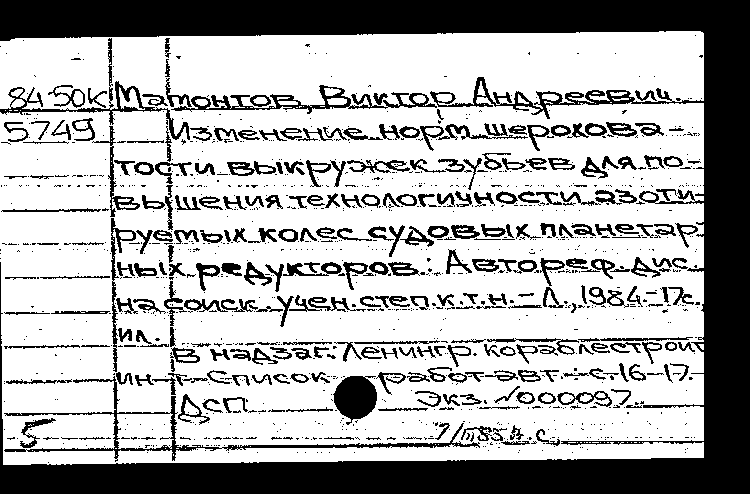 84-50К Мамонтов, Виктор Андреевич.
5749 Изменение норм шерохова-
тости выкружек зубьев для по-
вышения технологичности азоти-
руемых колес судовых планетар-
ных редукторов: Автореф. дис.
на соиск. учен. степ. к.т.н. – Л., 1984.-17с.,
ил.
В надзаг.: Ленингр. кораблестроит.
ин-т. Список работ авт.: с. 16-17.
ДСП Экз. №000097.
5